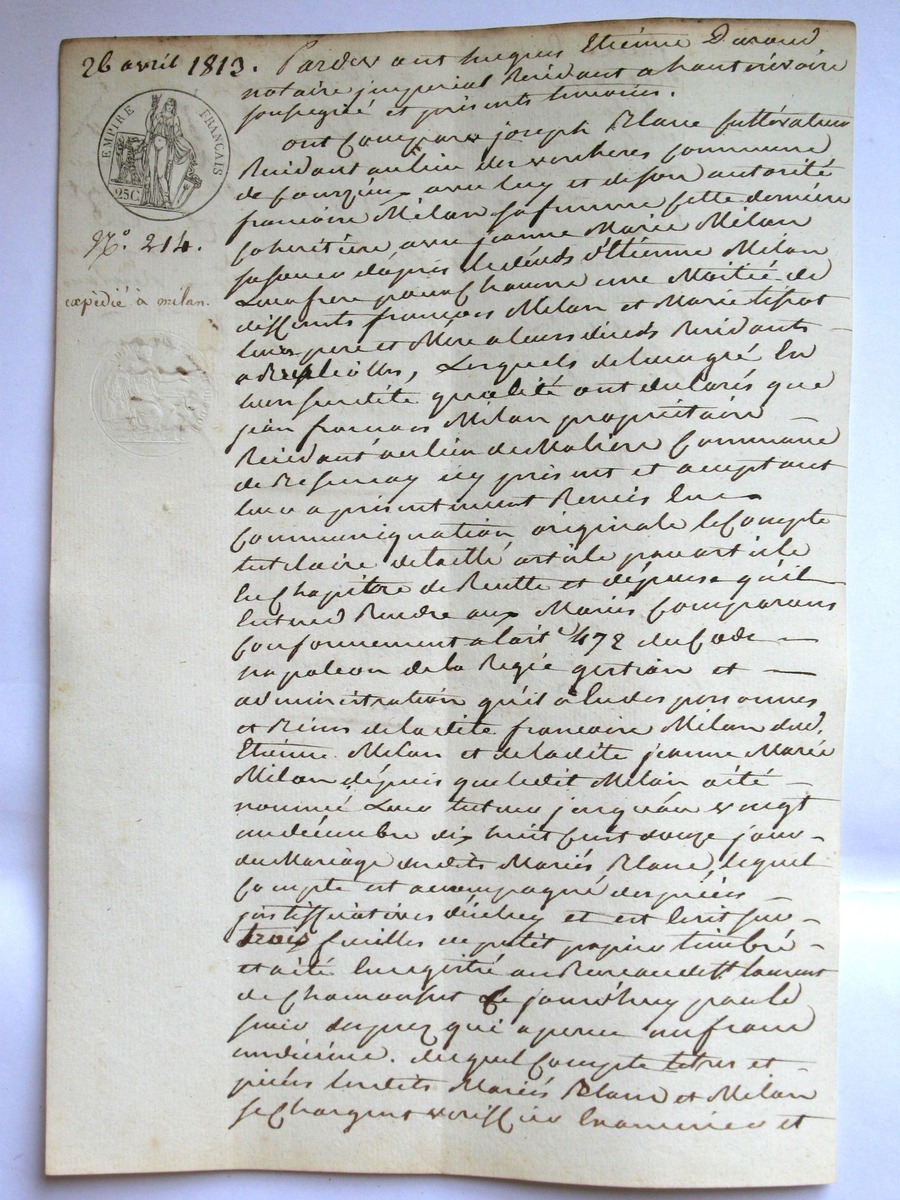 26 avril 1813.
EMPIRE FRANÇAIS
25C.
N.º 214.
expédié à milan.
Pardevant hugues Etiénne Durand
notaire jmperial Residant a hauterivoire
soussigné et présents temoins.
ont Comparu joseph Blanc cultivateur
Residant au lieu des commune
de avec luy et de son autorité
francoise Milan sa femme cette derniére
coheritiére avec jeanne Marie Milan
sa soeur dépuis le décéds d'Etiénne Milan
Leur frere pour Chacune une Moitié de
déffunts francois Milan et Marie
leurs pere et Mére a leurs décéds Residants
a Lesquels de leur gré En
leur susdite qualité ont déclarés que
jean francois Milan propriétaire
Residant au lieu de Commune
de icy présent et acceptant
leur a présentement Remis En
Communiquation originale le Compte
tutelaire detaillé article par article
En Chapitre de Recette et dépense qu'il
Entend Rendre aux Mariés Comparants
Conformement a l'art. 472 du Code
napoleon de la Regie gestion et
administration qu'il a Eu des personnes
et Biens de ladite francoise Milan dud.
Etiénne Milan et de ladite jeanne Marie
Milan dépuis que ledit Milan a été
nommé Leur tuteur jusqu'au vingt
un décembre dix huit cent douze jour
du Mariage desdits Mariés Blanc, lequel
Compte est accompagné des piéces
justifficatives d'icelluy et est Ecrit sur
trois feuilles de petit papier timbré
et a été Enregistré au Bureau de St. laurent
de Chamousset Ce jourd'huy par le
sieur qui a percu un franc
un décime. duquel Compte titres et
piéces lesdits Mariés Blanc et Milan
se Chargent veriffier Examiner et